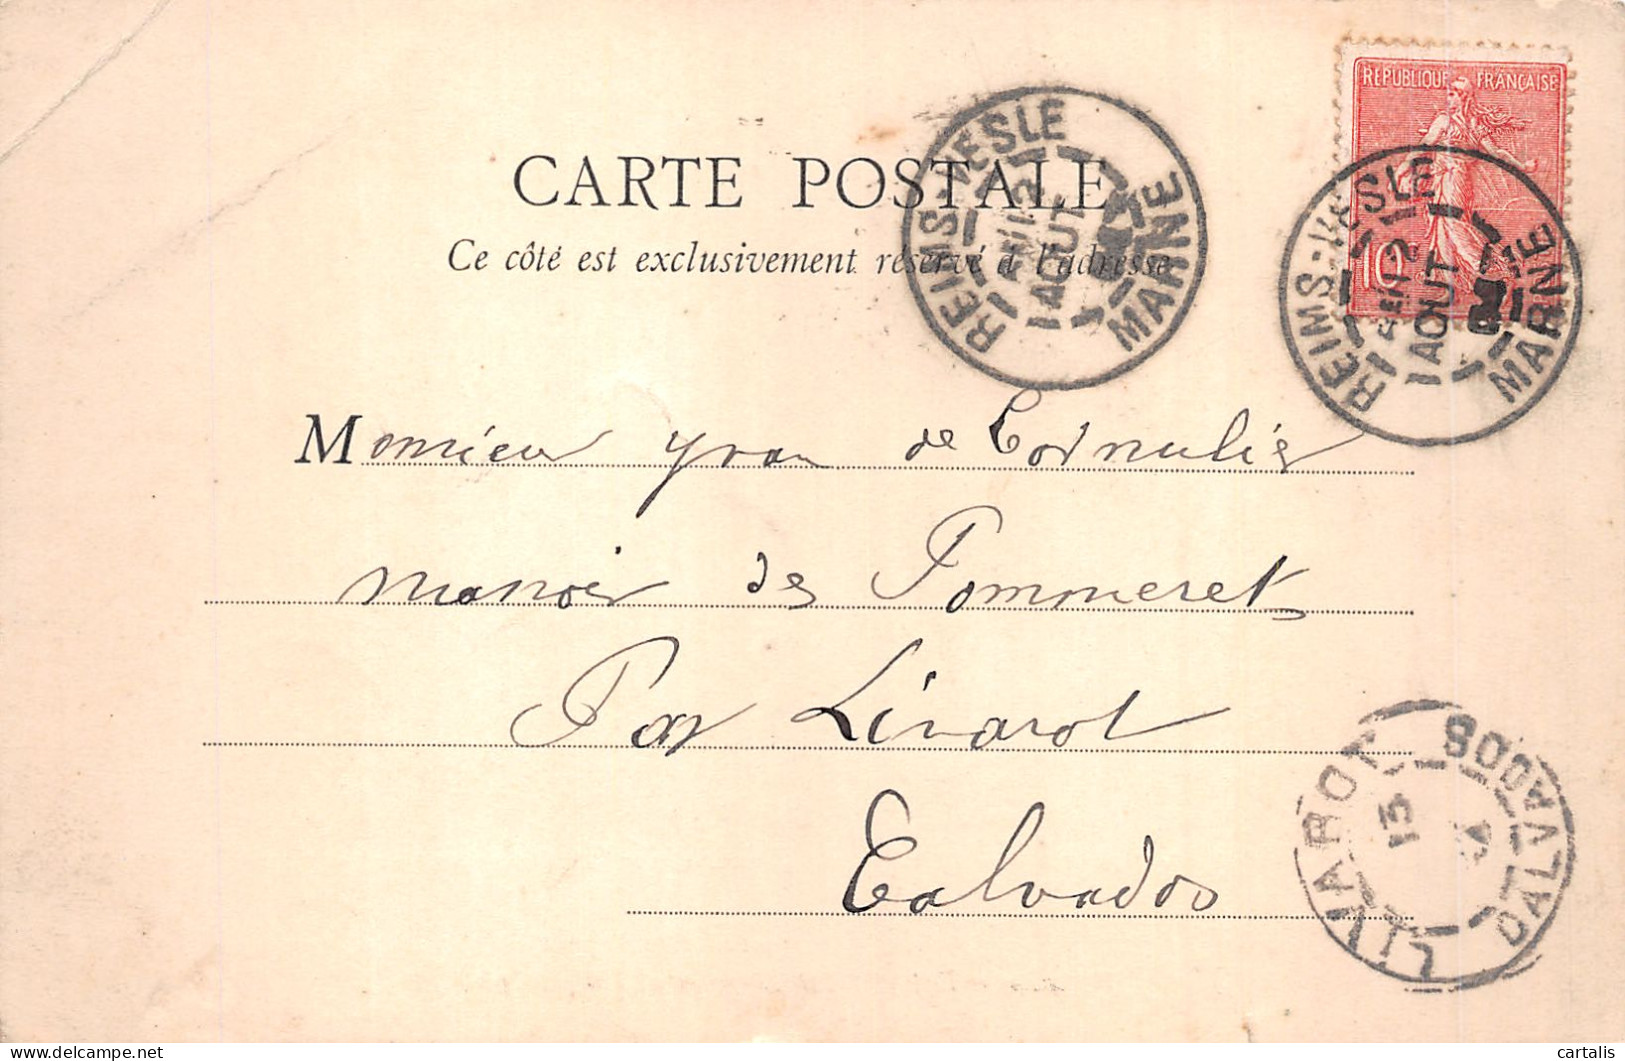 REPUBLIQUE FRANÇAISE
10
REIMS-VESLE
AOUT
MARNE
REIMS-VESLE
AOUT
MARNE
CARTE POSTALE
Ce côté est exclusivement réservé à l'adresse
Monsieur Yvan de Cornulier
manoir de Pommeret
Par Livarot
Calvados
LIVAROT
13
CALVADOS
cartalis